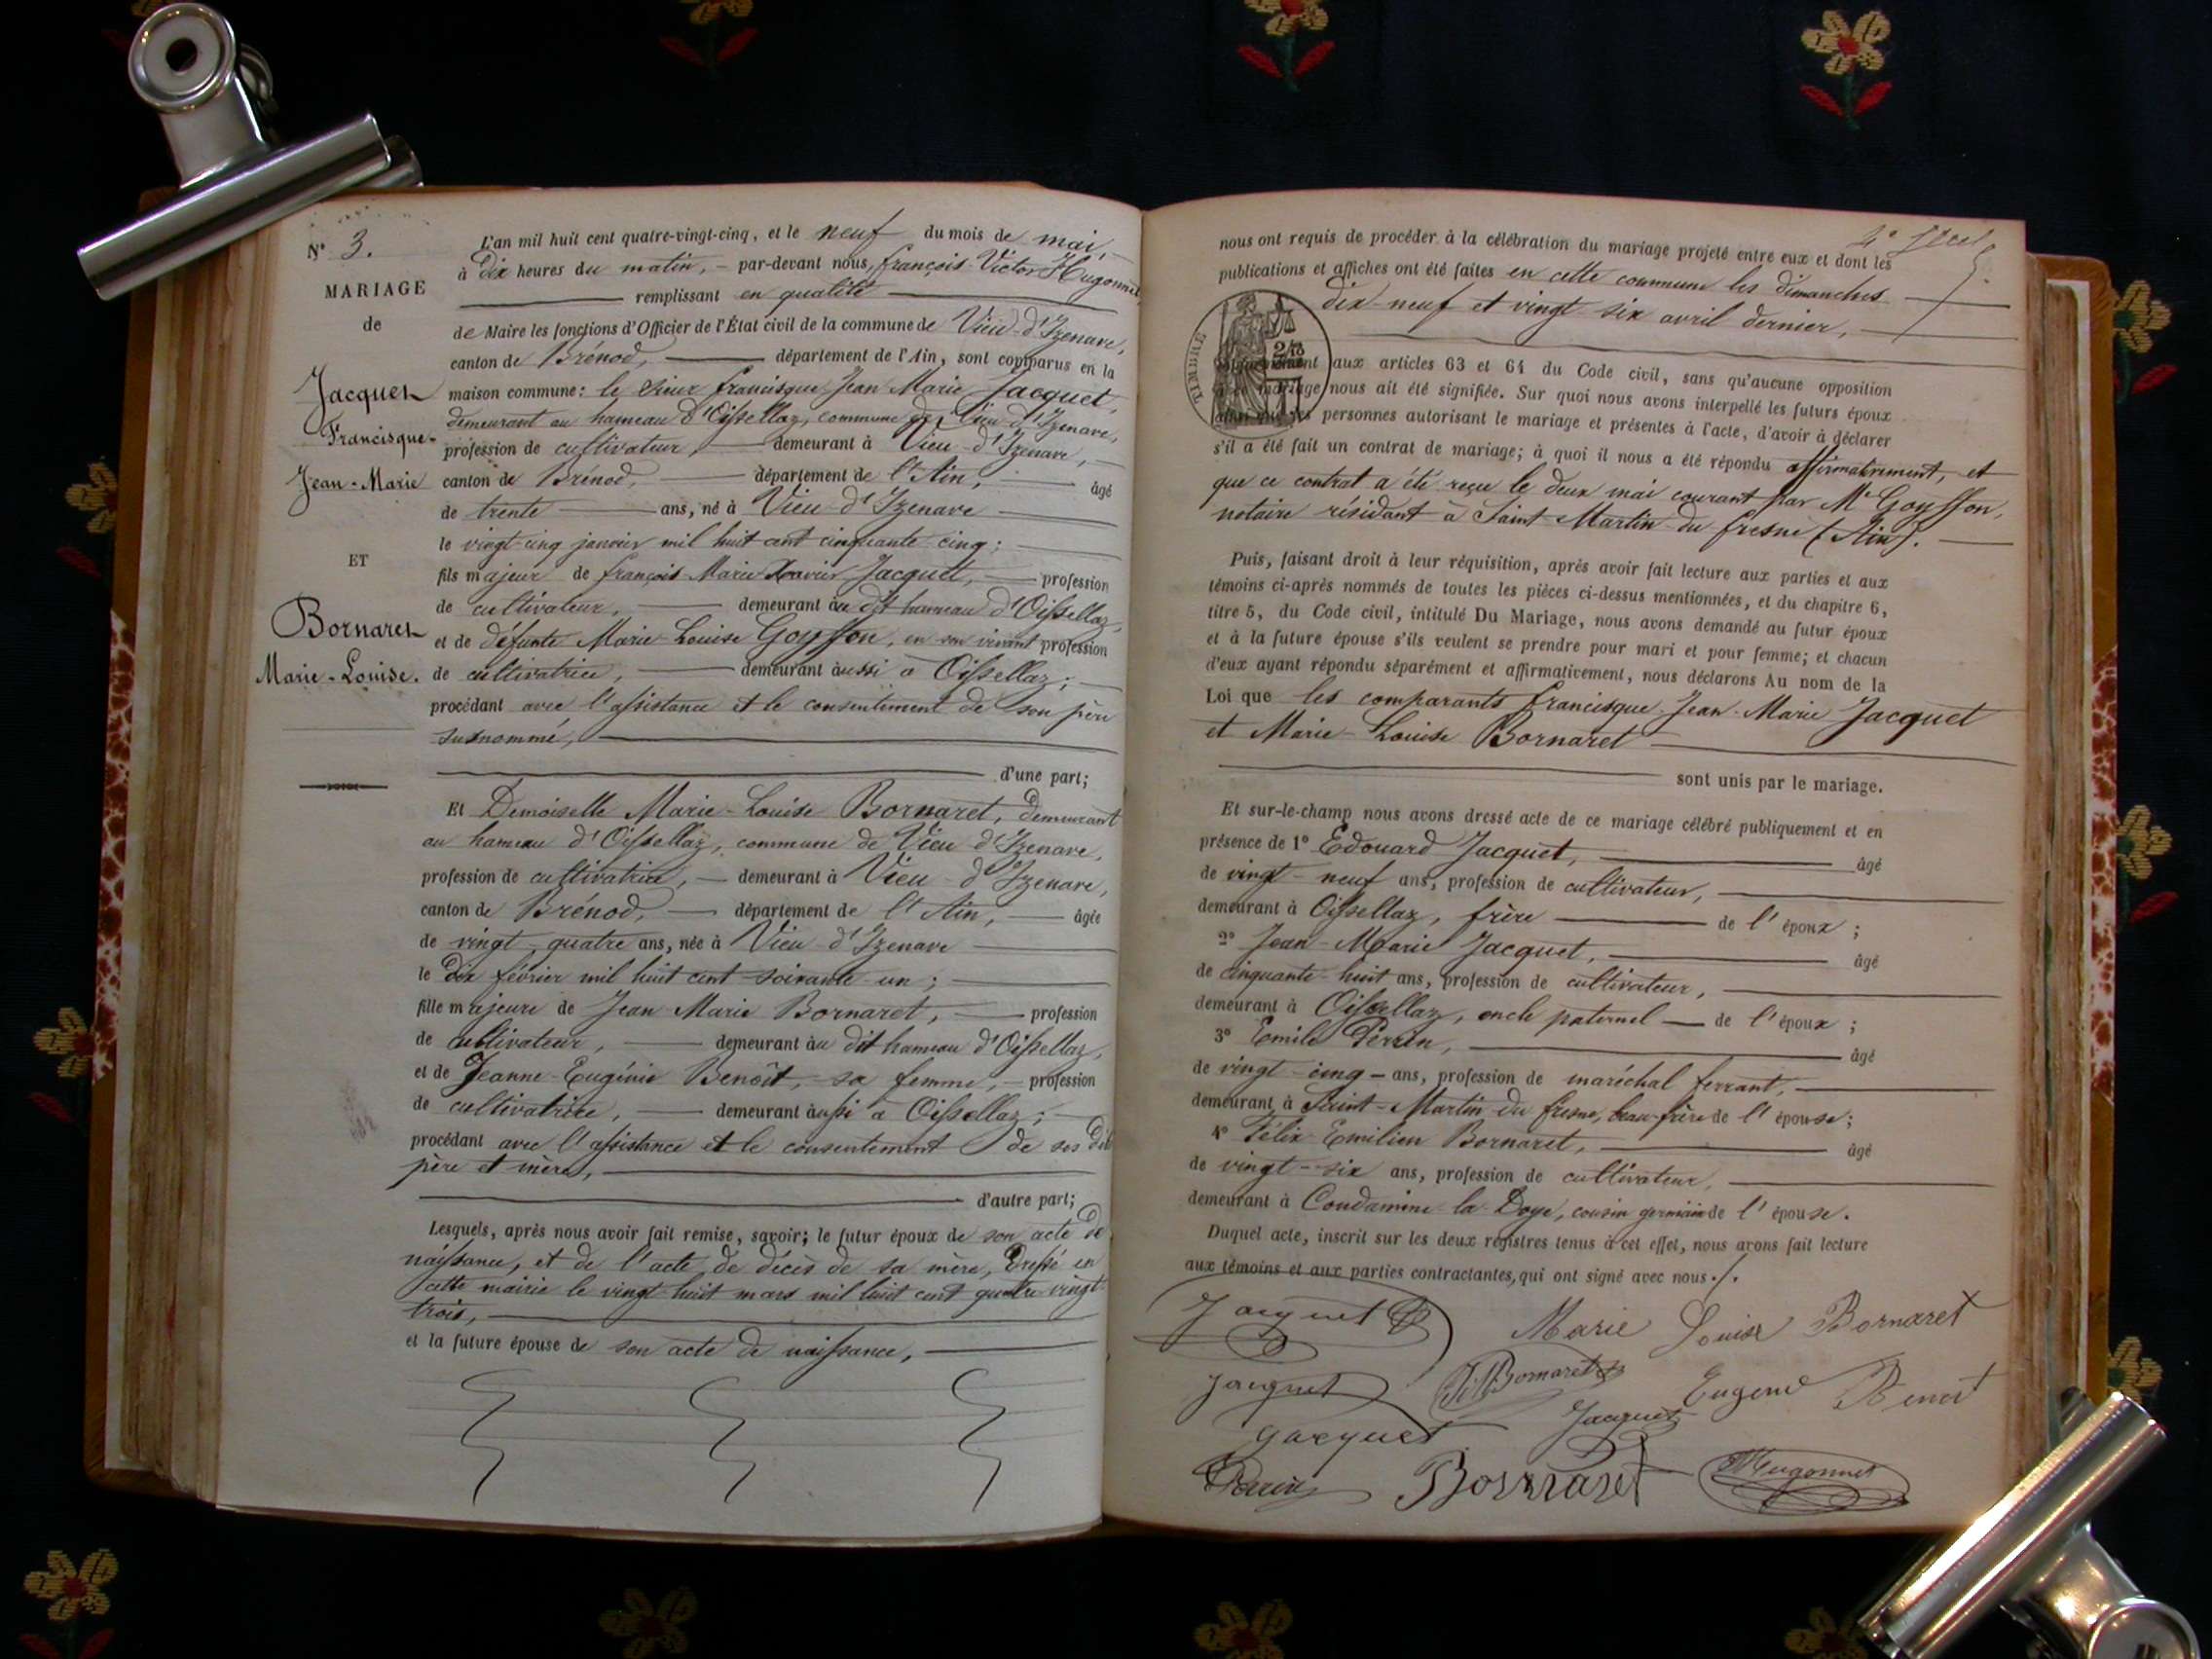 N° 3.
MARIAGE
de
Jacquet
Francisque-
Jean-Marie
ET
Bornaret
Marie-Louise.
L'an mil huit cent quatre-vingt-cinq, et le neuf du mois de mai,
à dix heures du matin, par-devant nous, françois Victor Hugonnet
remplissant en qualité
de Maire les fonctions d'Officier de l'État civil de la commune de Vieu-d'Izenave,
canton de Brénod, département de l'Ain, sont comparus en la
maison commune: le sieur francisque Jean Marie Jacquet,
demeurant au hameau d'Oissellaz, commune de Vieu-d'Izenave,
profession de cultivateur, demeurant à Vieu-d'Izenave,
canton de Brénod, département de l'Ain, âgé
de trente ans, né à Vieu-d'Izenave
le vingt-cinq janvier mil huit cent cinquante-cinq;
fils majeur de françois-Marie Xavier Jacquet, profession
de cultivateur, demeurant au dit hameau d'Oissellaz,
et de défunte Marie-Louise Goyffon, en son vivant profession
de cultivatrice, demeurant aussi à Oissellaz;
procédant avec l'assistance et le consentement de son père
susnommé,
d'une part;
Et Demoiselle Marie-Louise Bornaret, demeurant
au hameau d'Oissellaz, commune de Vieu d'Izenave,
profession de cultivatrice, demeurant à Vieu-d'Izenave,
canton de Brénod, département de l'Ain, âgée
de vingt-quatre ans, née à Vieu-d'Izenave
le dix février mil huit cent soixante-un;
fille majeure de Jean Marie Bornaret, profession
de cultivateur, demeurant au dit hameau d'Oissellaz,
et de Jeanne-Eugénie Benoît, sa femme, profession
de cultivatrice, demeurant aussi à Oissellaz;
procédant avec l'assistance et le consentement de ses dits
père et mère,
d'autre part;
Lesquels, après nous avoir fait remise, savoir; le futur époux de son acte de
naissance, et de l'acte de décès de sa mère, dressé en
cette mairie le vingt-huit mars mil huit cent quatre-vingt-
trois,
et la future épouse de son acte de naissance,
nous ont requis de procéder à la célébration du mariage projeté entre eux et dont les
publications et affiches ont été faites en cette commune les dimanches
dix-neuf et vingt-six avril dernier,
TIMBRE
conformément aux articles 63 et 64 du Code civil, sans qu'aucune opposition
à ce mariage nous ait été signifiée. Sur quoi nous avons interpellé les futurs époux
ainsi que les personnes autorisant le mariage et présentes à l'acte, d'avoir à déclarer
s'il a été fait un contrat de mariage; à quoi il nous a été répondu affirmativement, et
que ce contrat a été reçu le deux mai courant par Me Goyffon,
notaire résidant à Saint-Martin-du-fresne (Ain).
Puis, faisant droit à leur réquisition, après avoir fait lecture aux parties et aux
témoins ci-après nommés de toutes les pièces ci-dessus mentionnées, et du chapitre 6,
titre 5, du Code civil, intitulé Du Mariage, nous avons demandé au futur époux
et à la future épouse s'ils veulent se prendre pour mari et pour femme; et chacun
d'eux ayant répondu séparément et affirmativement, nous déclarons Au nom de la
Loi que les comparants francisque-Jean-Marie Jacquet
et Marie-Louise Bornaret
sont unis par le mariage.
Et sur-le-champ nous avons dressé acte de ce mariage célébré publiquement et en
présence de 1° Edouard Jacquet, âgé
de vingt-neuf ans, profession de cultivateur,
demeurant à Oissellaz, frère de l'époux;
2° Jean-Marie Jacquet, âgé
de cinquante-huit ans, profession de cultivateur,
demeurant à Oissellaz, oncle paternel de l'époux;
3° Emile Perrin, âgé
de vingt-cinq ans, profession de maréchal ferrant,
demeurant à Saint-Martin-du fresne, beau-frère de l'épouse;
4° Félix Emilien Bornaret, âgé
de vingt-six ans, profession de cultivateur,
demeurant à Condamine-la-Doye, cousin germain de l'épouse.
Duquel acte, inscrit sur les deux registres tenus à cet effet, nous avons fait lecture
aux témoins et aux parties contractantes, qui ont signé avec nous./.
Jacquet Marie Louise Bornaret
Jacquet Bornaret Eugenie Benoit
Jacquet Jacquet
Perrin Bornaret Hugonnet